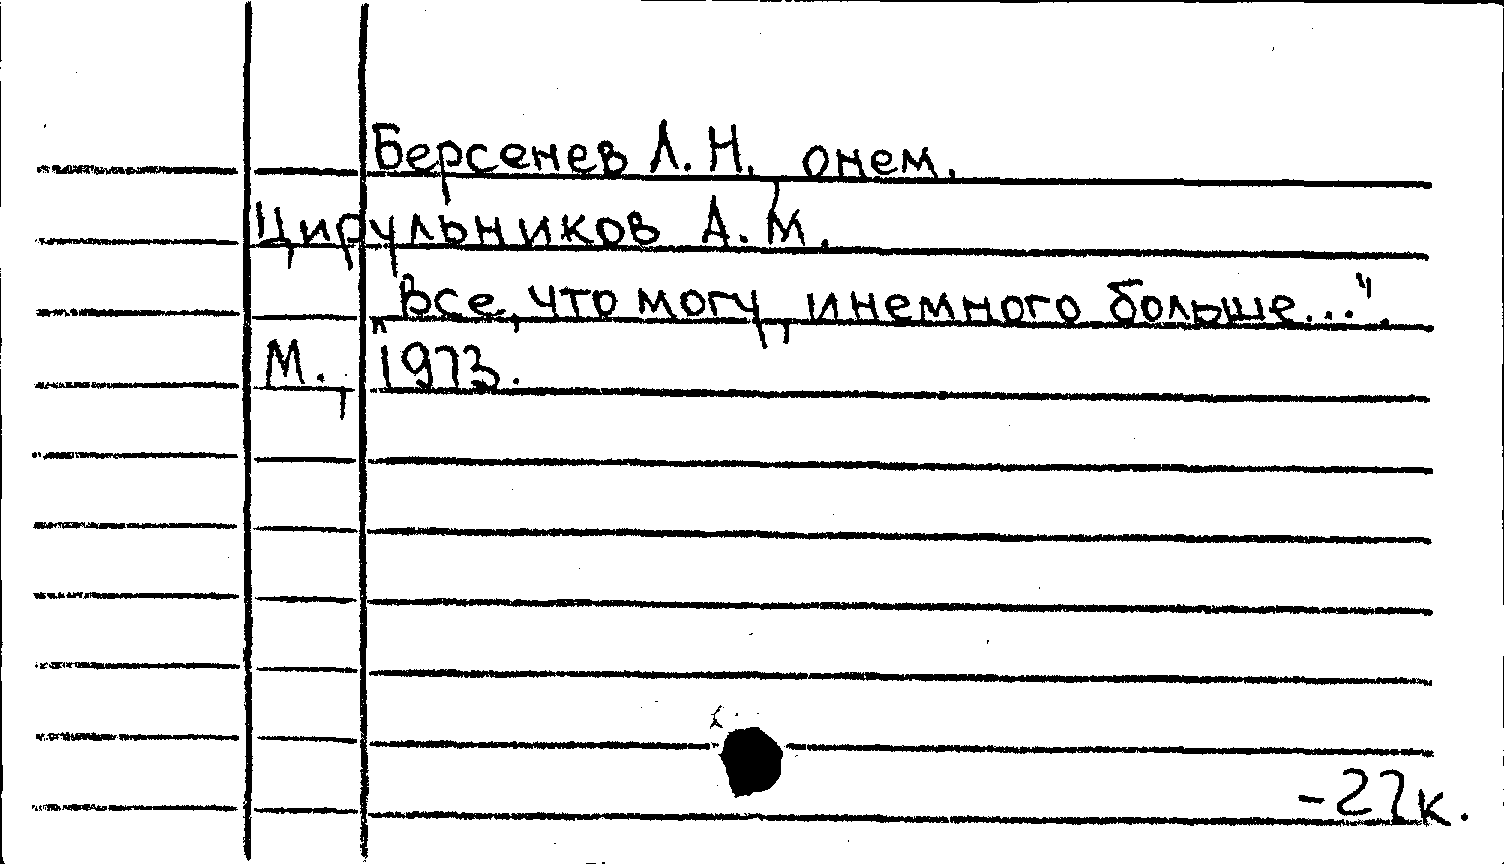 Берсенев Л.Н. о нем.
Цирульников А.М.
„Все, что могу, и немного больше...".
М., 1973.
-22к.